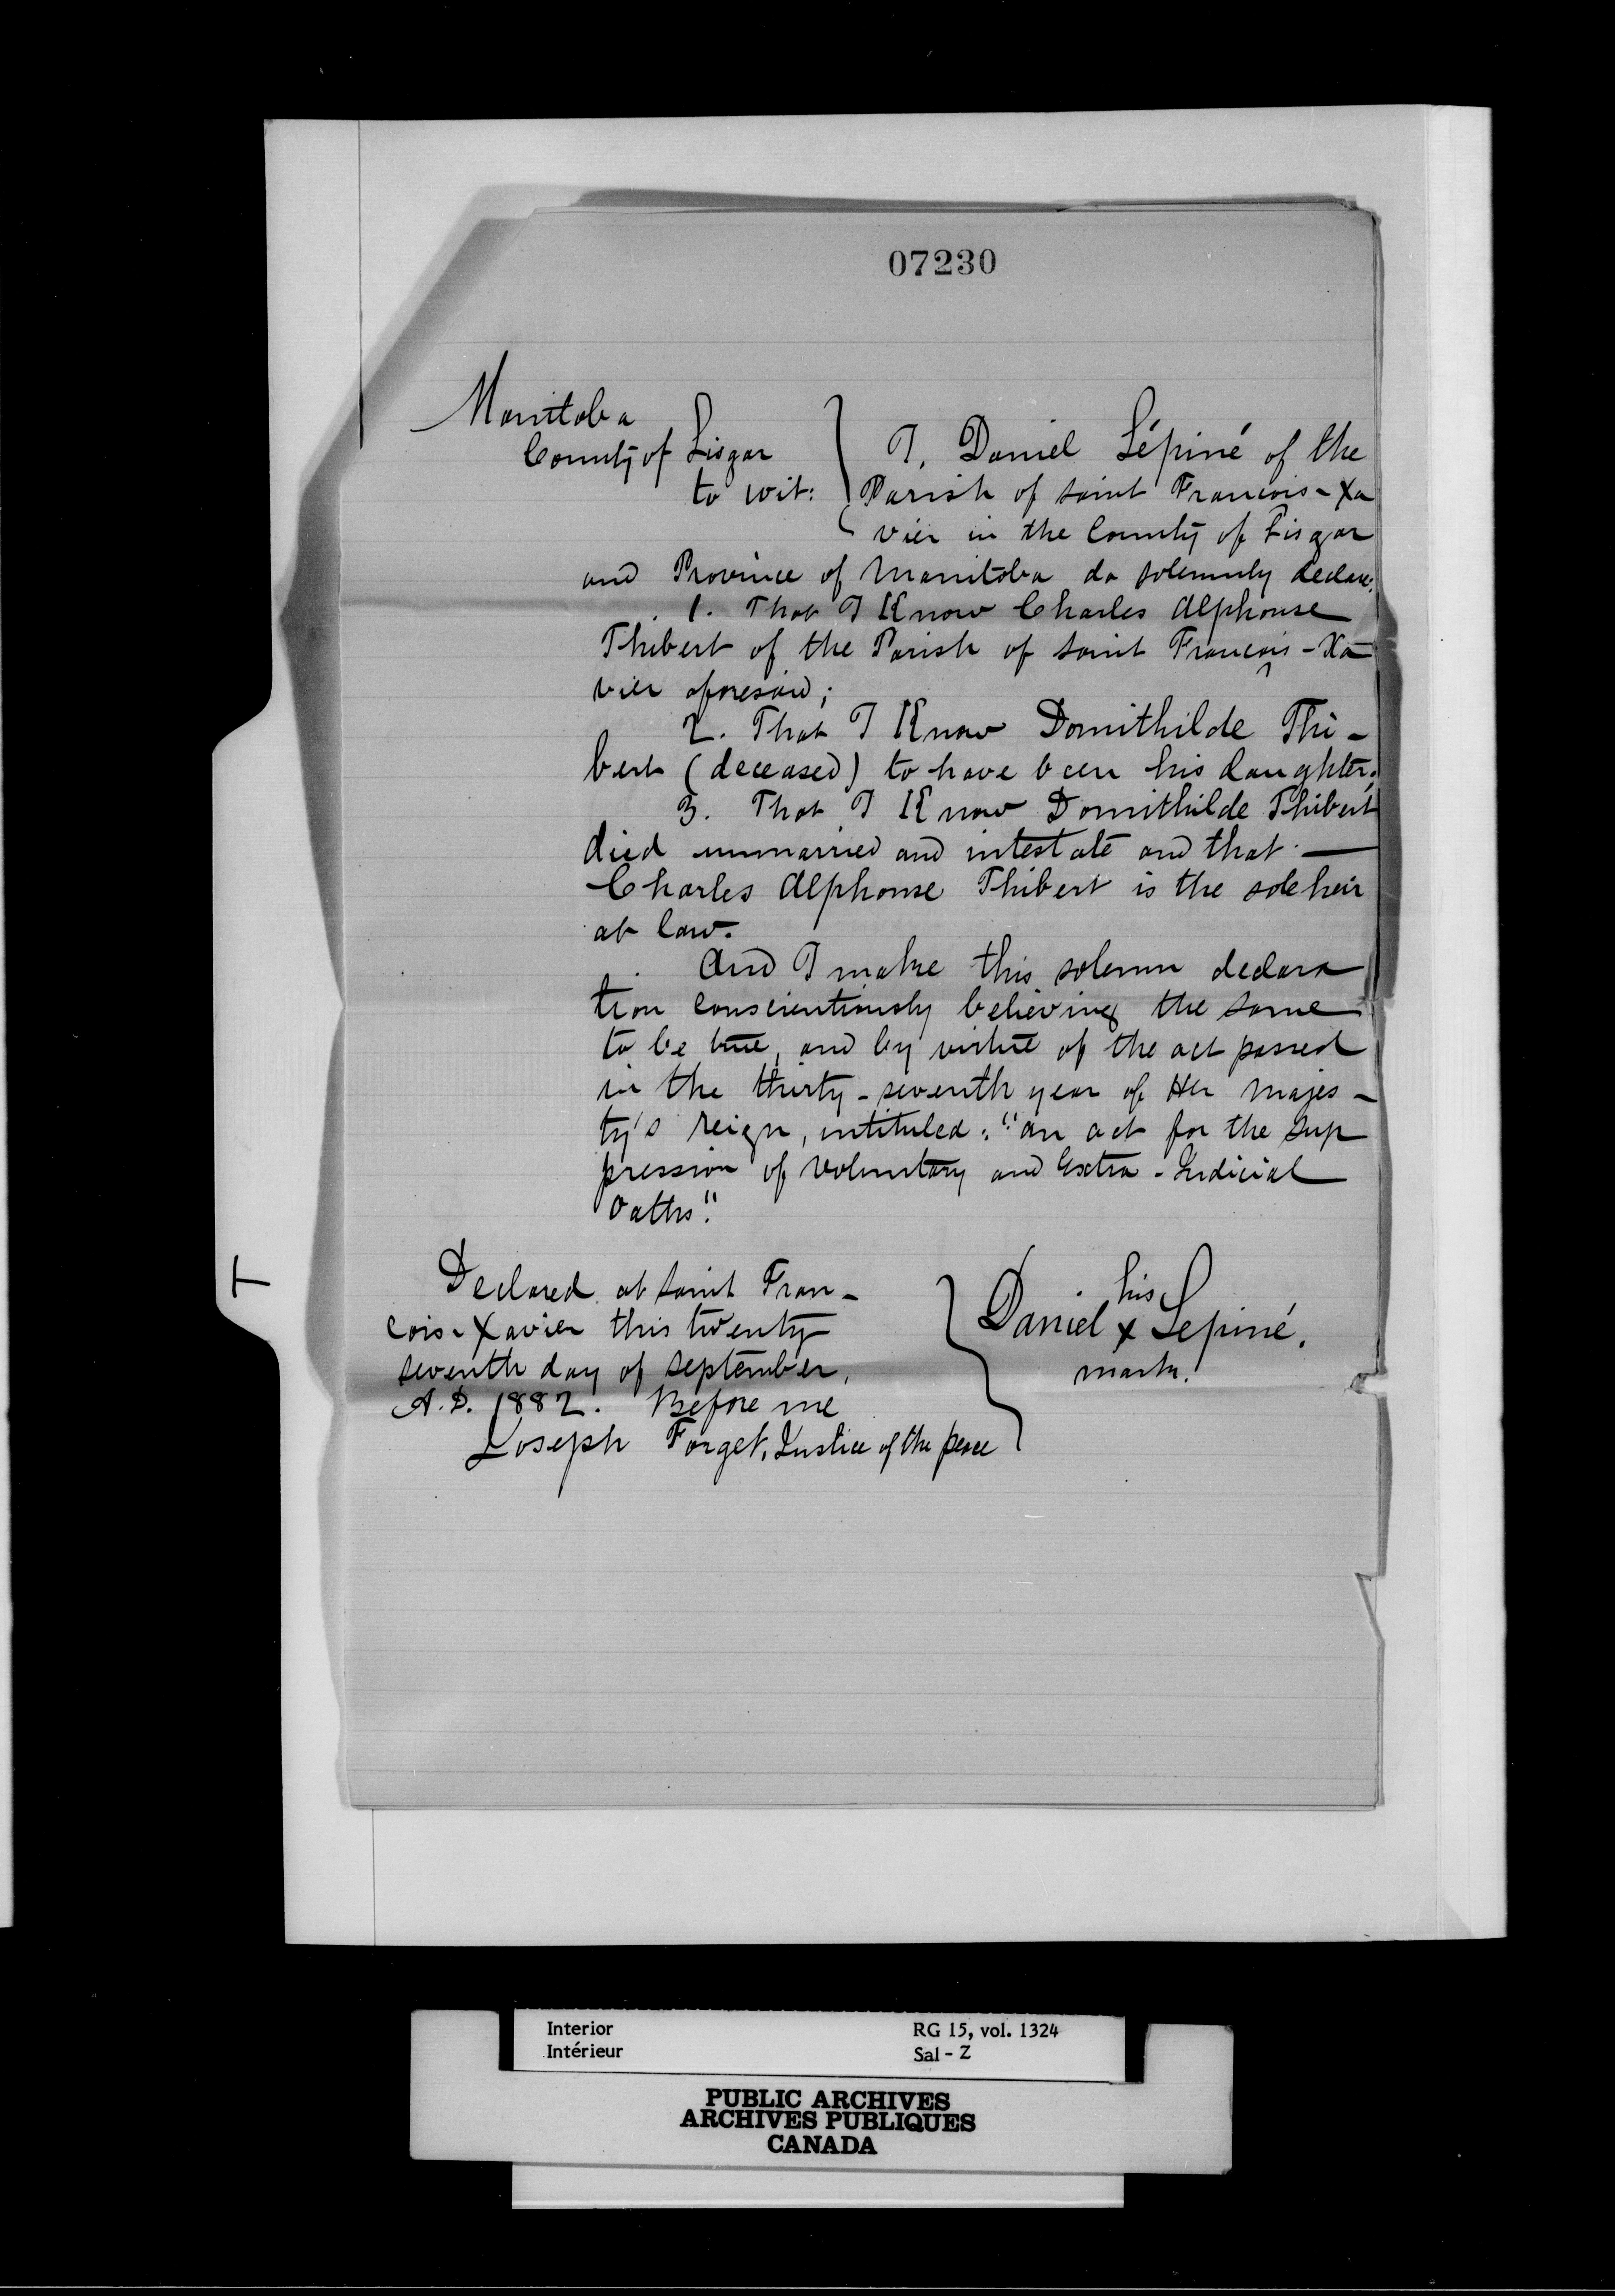 07230
Manitoba
County of Lisgar
to wit:
I, Daniel Lépiné of the
Parish of saint Francois-Xa
vier in the County of Lisgar
and Province of Manitoba do solemnly declare:
1. That I Know Charles Alphonse
Thibert of the Parish of saint Francois-Xa
vier aforesaid;
2. That I Know Domithilde Thi-
bert (deceased) to have been his daughter.
3. That I Know Domithilde Thibert
died unmarried and intestate and that
Charles Alphonse Thibert is the sole heir
at law.
And I make this solemn declara
tion conscientiously believing the same
to be true, and by virtue of the act passed
in the thirty-seventh year of Her Majes-
ty's reign, intituled: "an act for the Sup
pression of Voluntary and Extra-Judicial
Oaths."
Declared at saint Fran-
cois-Xavier this twenty
seventh day of september,
A.D. 1882. Before me
Joseph Forget, Justice of the peace
his
Daniel x Lepiné.
mark.
T
Interior RG 15, vol. 1324
Intérieur Sal - Z
PUBLIC ARCHIVES
ARCHIVES PUBLIQUES
CANADA